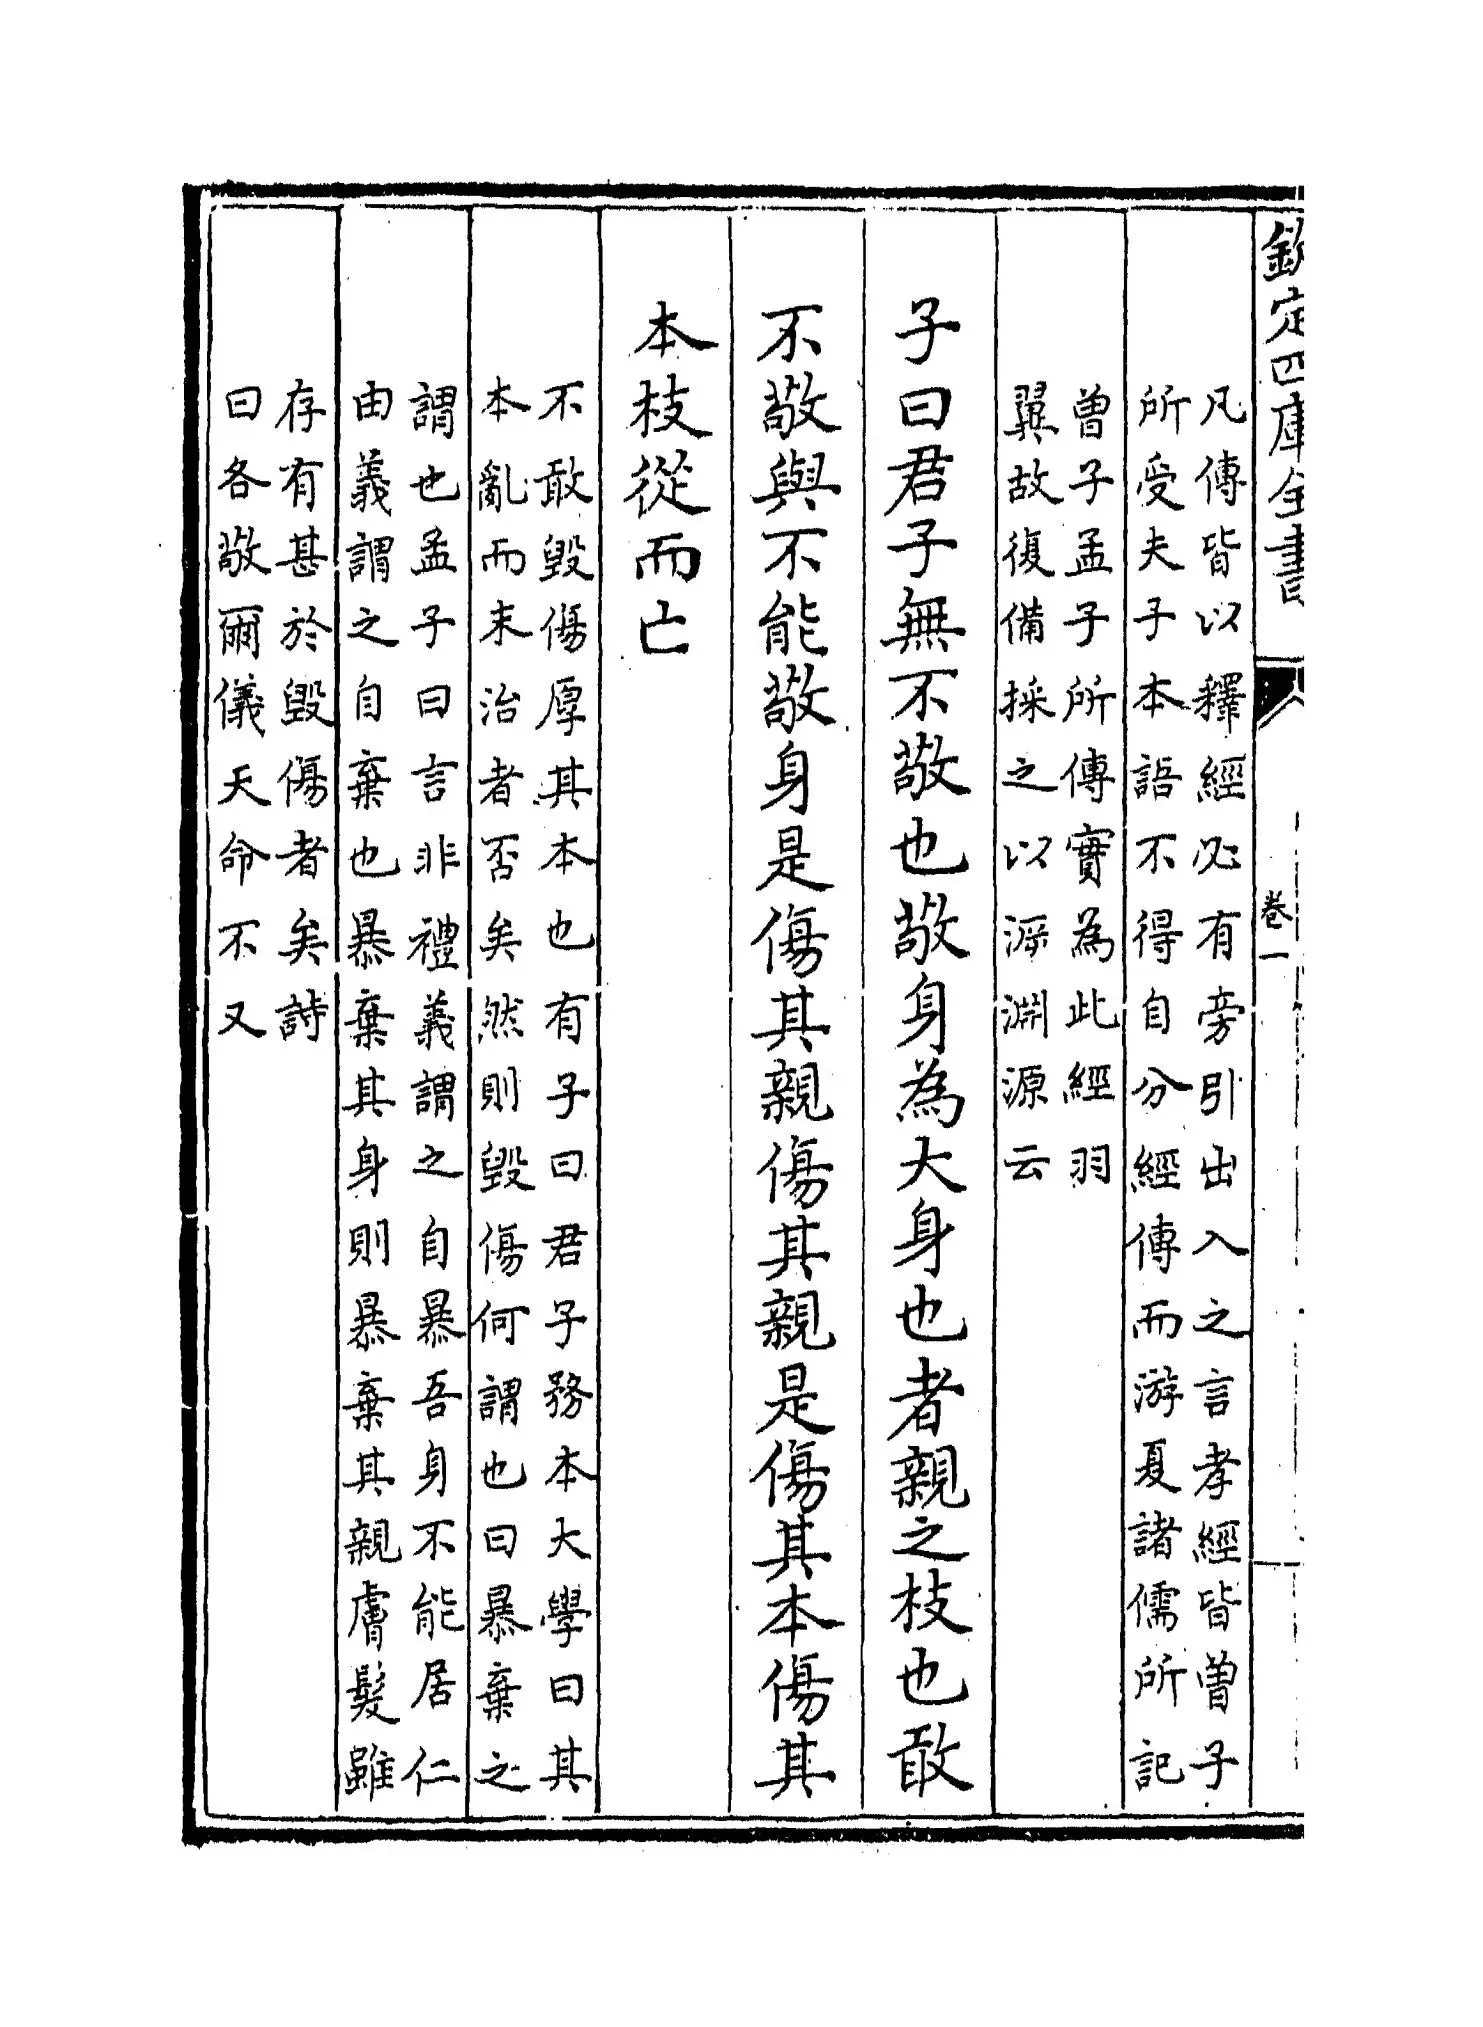 欽定四庫全書
卷一
凡傳皆以釋經必有旁引出入之言孝經皆曽子
所受夫子本語不得自分經傳而游夏諸儒所記
曽子孟子所傳實為此經羽
翼故復備採之以泝淵源云
子曰君子無不敬也敬身為大身也者親之枝也敢
不敬與不能敬身是傷其親傷其親是傷其本傷其
本枝從而亡
不敢毀傷厚其本也有子曰君子務本大學曰其
本亂而末治者否矣然則毀傷何謂也曰暴棄之
謂也孟子曰言非禮義謂之自暴吾身不能居仁
由義謂之自棄也暴棄其身則暴棄其親膚髮雖
存有甚於毀傷者矣詩
曰各敬爾儀天命不又